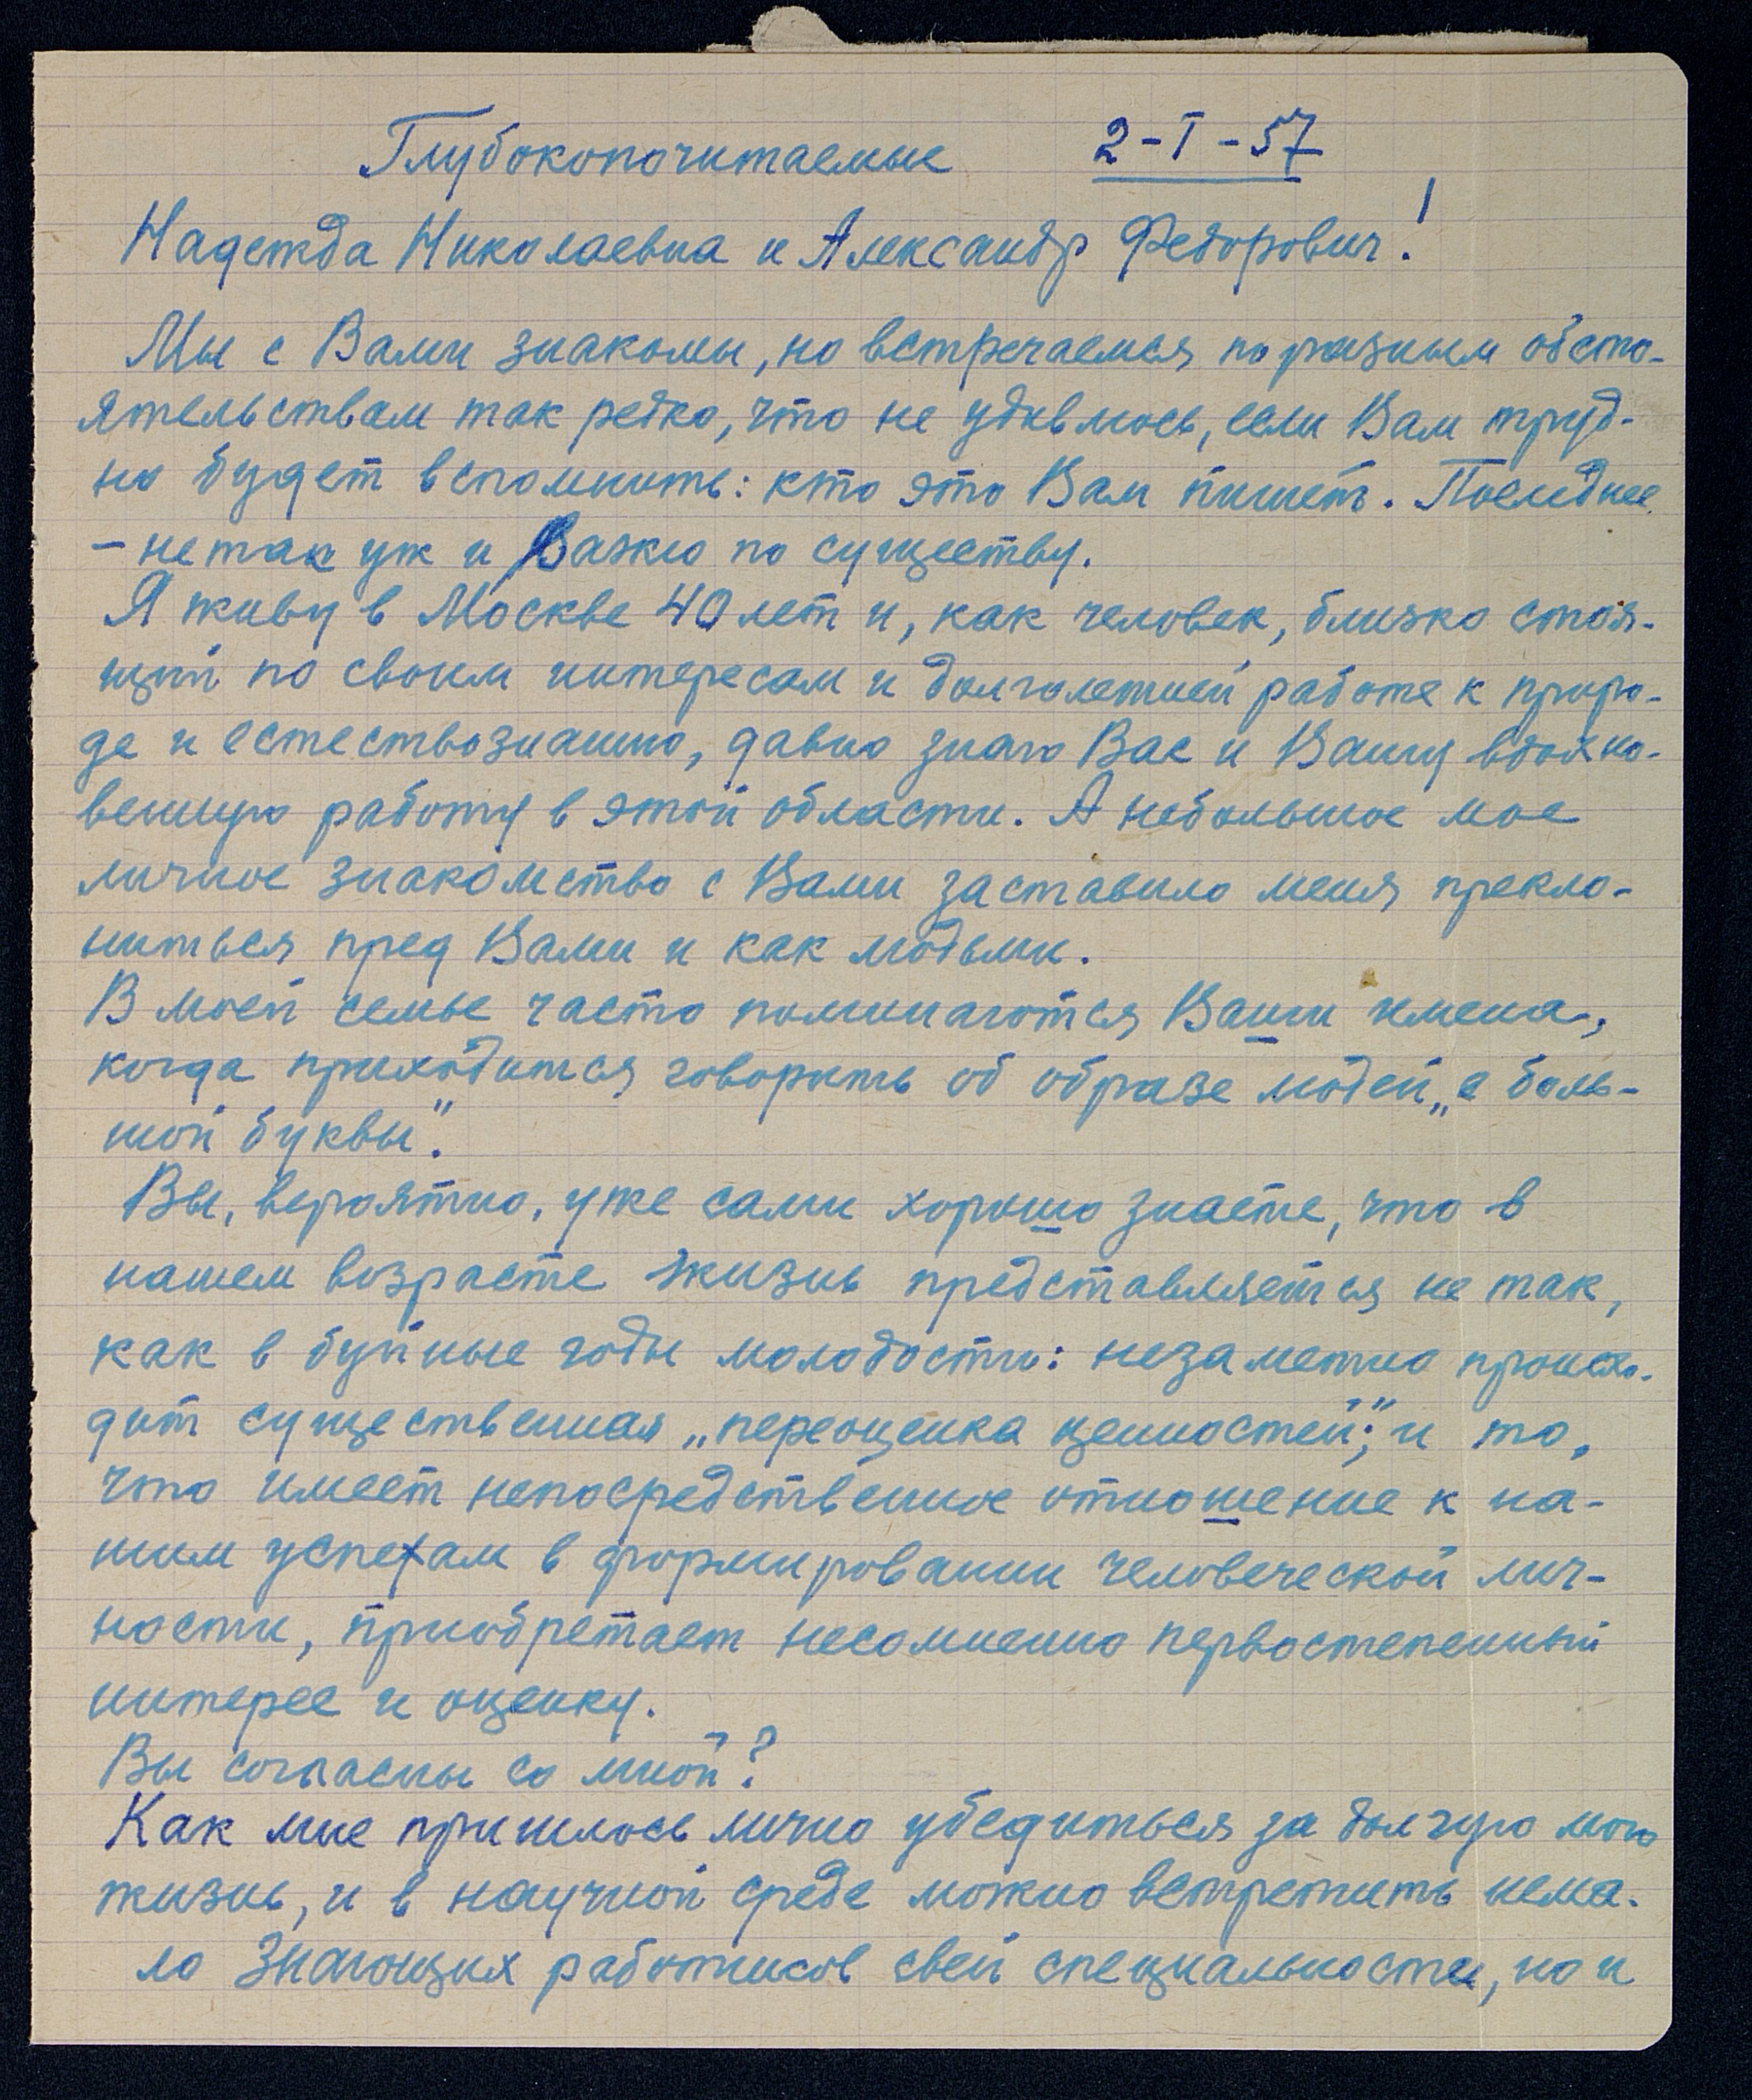 Глубокопочитаемые 2-I-57
Надежда Николаевна и Александр Федорович!
Мы с Вами знакомы, но встречаемся по разным обсто-
ятельствам так редко, что не удивлюсь, если Вам труд-
но будет вспомнить: кто это Вам пишет. Последнее
– не так уж и Важно по существу.
Я живу в Москве 40 лет и, как человек, близко стоя-
щий по своим интересам и долголетней работе к приро-
де и естествознанию, давно знаю Вас и Вашу вдохно-
венную работу в этой области. А небольшое мое
личное знакомство с Вами заставило меня прекло-
ниться пред Вами и как людьми.
В моей семье часто поминаются Ваши имена,
когда приходится говорить об образе людей „с боль-
шой буквы".
Вы, вероятно, уже сами хорошо знаете, что в
нашем возрасте жизнь представляется не так,
как в буйные годы молодости: незаметно происхо-
дит существенная „переоценка ценностей"; и то,
что имеет непосредственное отношение к на-
шим успехам в формировании человеческой лич-
ности, приобретает несомненно первостепенный
интерес и оценку.
Вы согласны со мной?
Как мне пришлось лично убедиться за долгую мою
жизнь, и в научной среде можно встретить нема-
ло Знающих работников своей специальности, но и